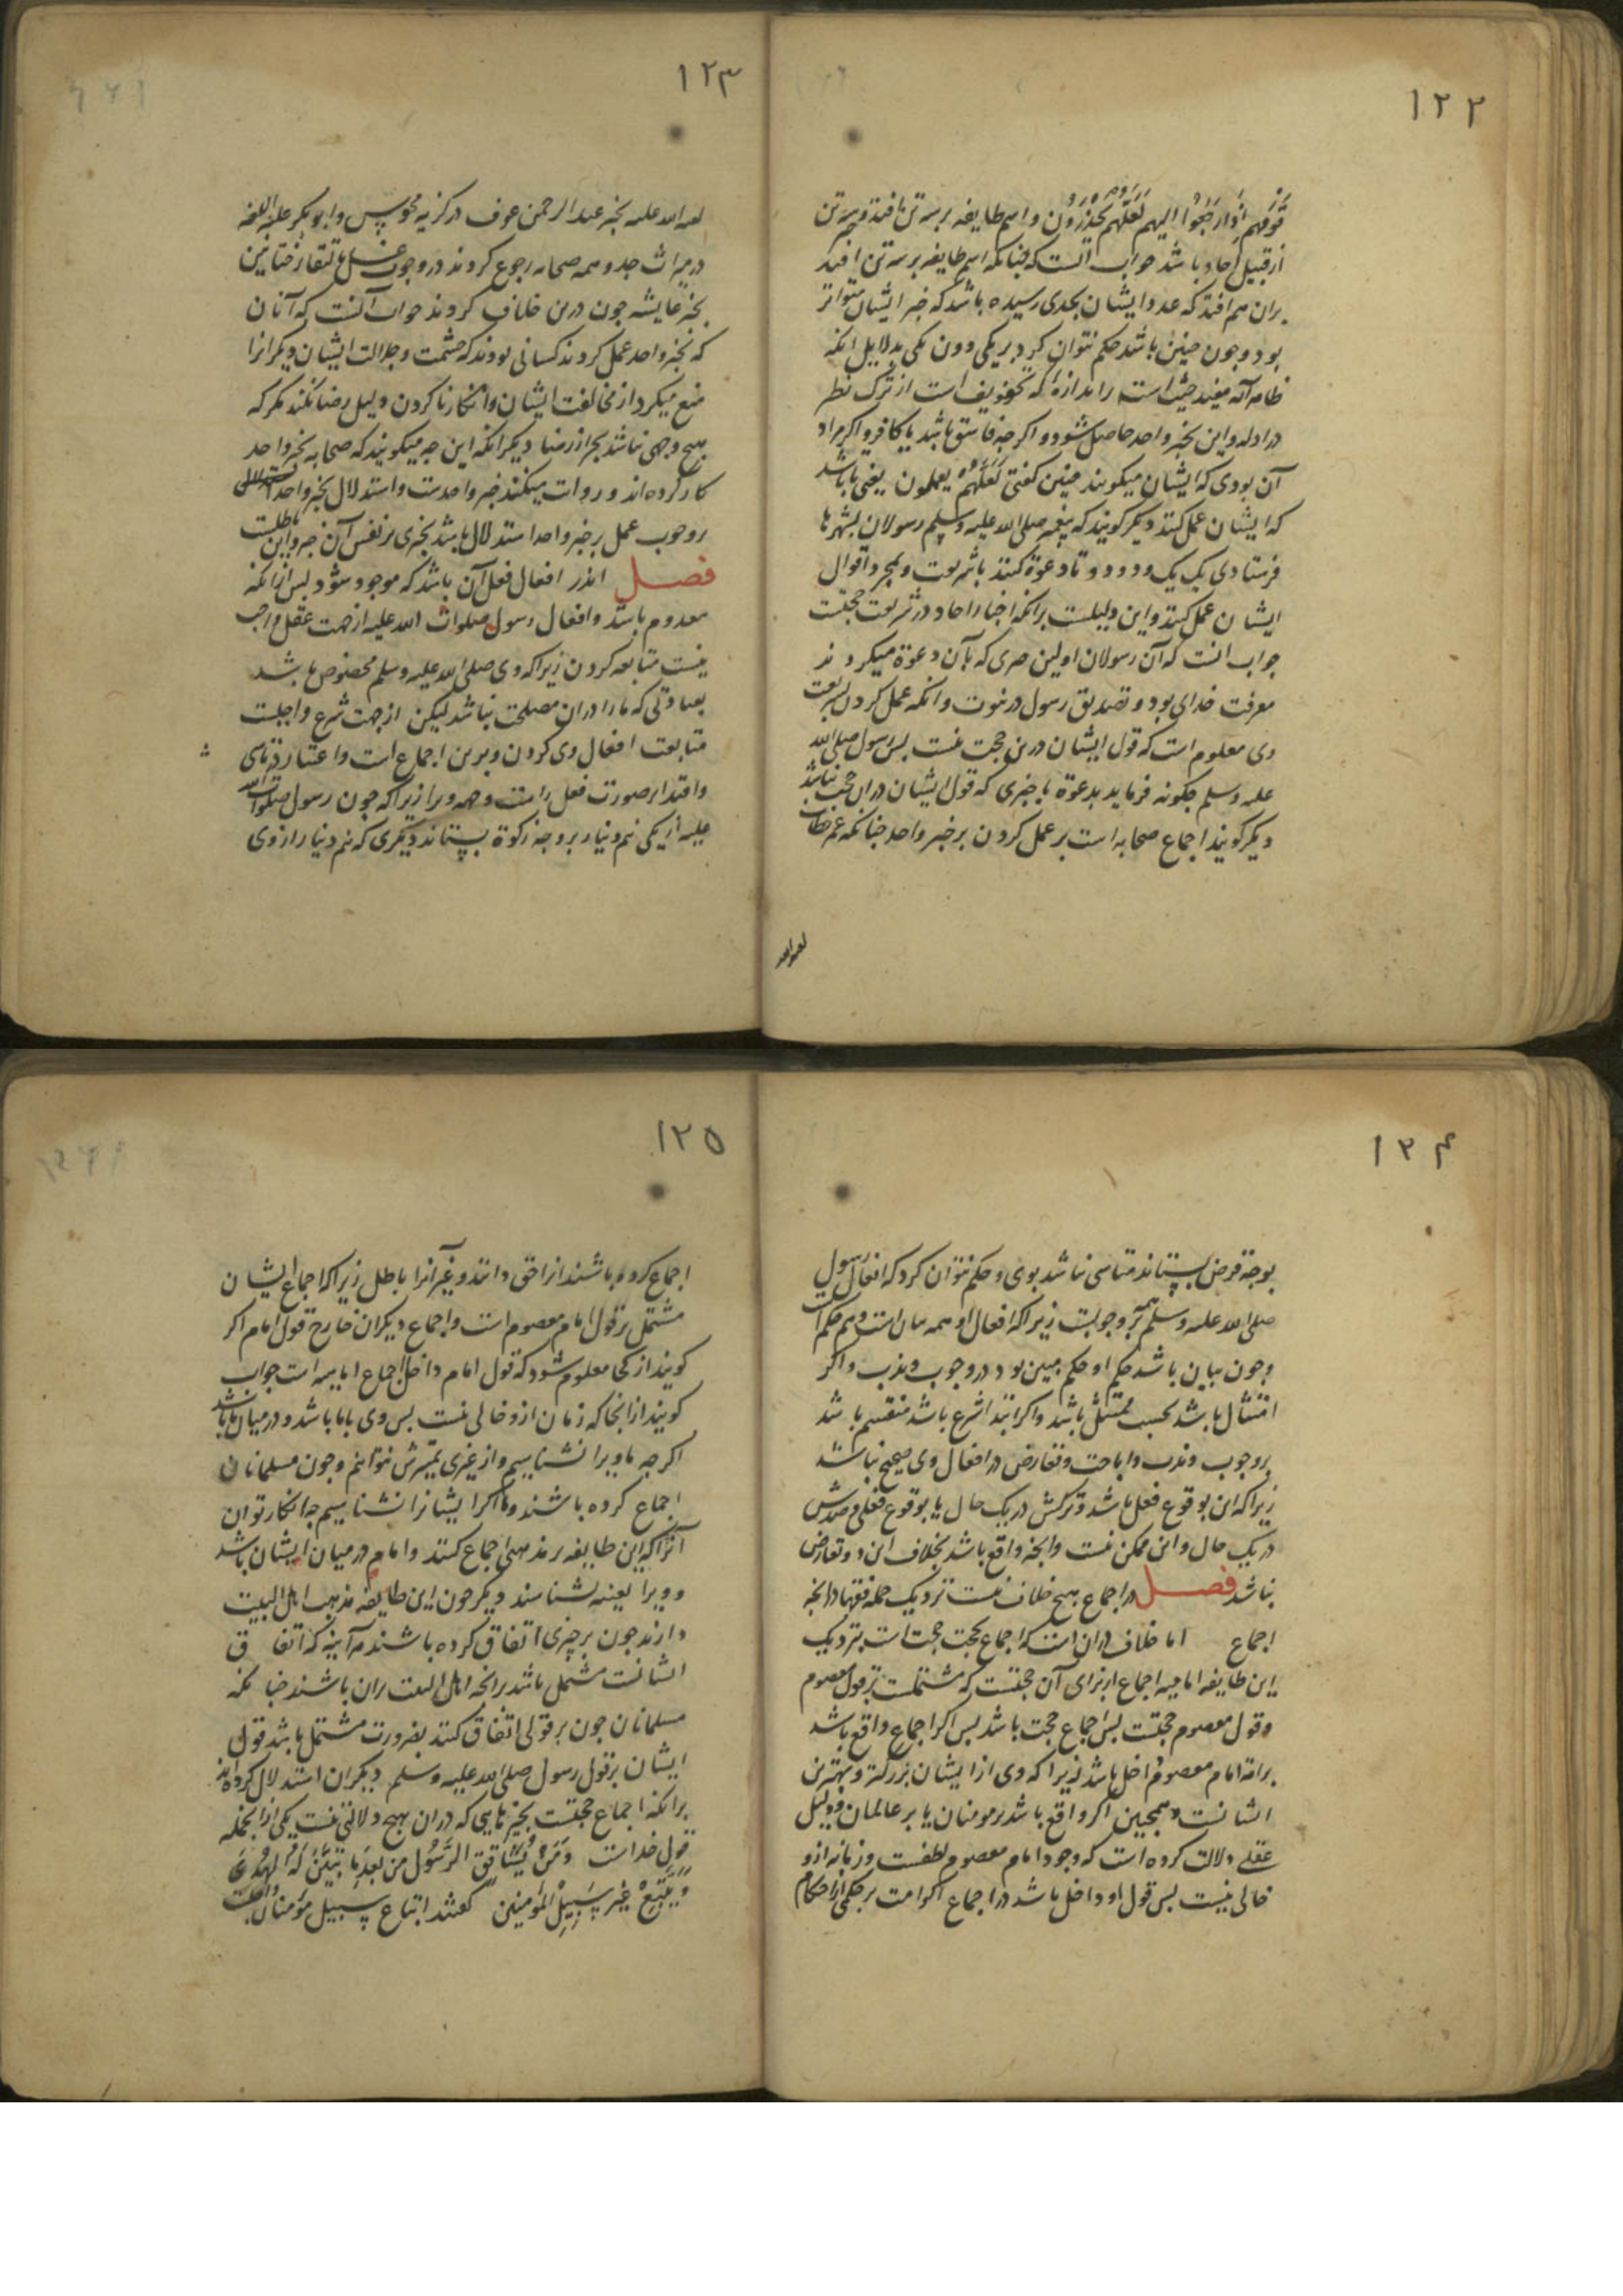 ۱۲۲
قومهم اذا رجعوا الیهم لعلهم یحذرون و اسم طایفه بر سه تن افتد و سه تن
از قبیل آحاد باشد جواب آنست که چنانکه اسم طایفه بر سه تن افتد
بران هم افتد که عدد ایشان بحدی رسیده باشد که خبر ایشان متواتر
بود و چون چنین باشد حکم نتوان کرد بریکی دون یکی بدلایل انکه
ظاهر آیه مفید است که تخویف است از ترک نظر
در ادله و این بخبر واحد حاصل شود و اگرچه فاسق باشد یا کافر و اگر مراد
آن بودی که ایشان میگویند چنین گفتی لعلهم یعملون یعنی تا باشد
که ایشان عمل کنند دیگر گویند که پیغمبر صلی الله علیه و سلم رسولان بشهرها
فرستادی یک یک و دو دو تا دعوة کنند با شریعت و بمجرد اقوال
ایشان عمل کنند و این دلیلست برانکه اخبار احاد در شریعت حجتست
جواب انست که آن رسولان اولین چیزی که بآن دعوة میکردند
معرفت خدای بود و تصدیق رسول در نبوت و انکه عمل کردن بشریعت
وی معلوم است که قول ایشان درین حجت نیست پس رسول صلی الله
علیه و سلم چگونه فرماید بدعوة با چیزی که قول ایشان دران حجت نباشد
دیگر گویند اجماع صحابه است بر عمل کردن بر خبر واحد چنانکه عمر خطاب
۱۲۳
لعنه الله علیه بخبر عبد الرحمن عوف در گزیه مجوس و ابوبکر علیه اللعنه
در میراث جد و همه صحابه رجوع کردند در وجوب غسل بالتقاء ختانین
بخبر عایشه چون درین خلاف کردند جواب آنست که آنان
که بخبر واحد عمل کردند کسانی بودند که حشمت و جلالت ایشان دیگرانرا
منع میکرد از مخالفت ایشان و انکار ناکردن دلیل رضا نکند مگر که
هیچ وجهی نباشد بجز از رضا دیگر انکه این چه میگویند که صحابه بخبر واحد
کار کرده اند و روات میکنند خبر واحدست و استدلال بخبر واحد
بر وجوب عمل بر خبر واحد استدلال باشد بچیزی بر نفس آن چیز و این باطلست
فصل اندر افعال فعل آن باشد که موجود شود پس ازانکه
معدوم باشد و افعال رسول صلوات الله علیه از جهت عقل واجب
نیست متابعه کردن زیرا که وی صلی الله علیه و سلم مخصوص باشد
بعباداتی که ما را دران مصلحت نباشد لیکن از جهت شرع واجبست
متابعت افعال وی کردن و برین اجماع است و اعتبار در تاسی
و اقتدا بر صورت فعل راست و وجه ورا زیرا که چون رسول صلوات الله
علیه از یکی نیم دینار بر وجه زکوة بستاند دیگری که نیم دینار از وی
۱۲۴
بوجه قرض بستاند متاسی نباشد بوی و حکم نتوان کرد که افعال رسول
صلی الله علیه و سلم همه بر وجوبست زیرا که افعال او همه بیان است
و چون بیان باشد حکم او حکم مبین بود در وجوب و ندب و اگر
امتثال باشد بحسب ممتثل باشد و اگر ابتدا شرع باشد منقسم باشد
بر وجوب و ندب و اباحت و تعارض در افعال وی صحیح نباشد
زیرا که این بوقوع فعل باشد و ترکش در یک حال یا بوقوع فعلی و ضدش
در یک حال و این ممکن نیست و انچه واقع باشد بخلاف این دو تعارض
نباشد فصل در اجماع هیچ خلاف نیست نزدیک جمله فقها در انچه
اجماع اما خلاف در ان است که اجماع بحجت حجت است بنزدیک
این طایفه امامیه اجماع از برای آن حجتست که مشتملست بر قول معصوم
و قول معصوم حجتست پس اجماع حجت باشد پس اگر اجماع واقع باشد
بر امة امام معصوم داخل باشد زیرا که وی از ایشان بزرگتر و بهترین
ایشانست و همچنین اگر واقع باشد بر مومنان یا بر عالمان و دلیل
عقلی دلالت کرده است که وجود امام معصوم لطفست و زمانه ازو
خالی نیست پس قول او داخل باشد در اجماع اگر امت بر حکمی از احکام
۱۲۵
اجماع کرده باشند انرا حق دانند و غیر آنرا باطل زیرا که اجماع ایشان
مشتمل بر قول امام معصوم است و اجماع دیگران خارج قول امام اگر
گویند از کجا معلوم شود که قول امام داخل اجماع امامیه است جواب
گویند ازانجا که زمان ازو خالی نیست پس وی با ما باشد و در میان ما باشد
اگرچه ما ویرا نشناسیم و از غیری تمیزش نتوانیم و چون مسلمانان
اجماع کرده باشند و ما اگر ایشانرا نشناسیم چه انکار توان
آنرا که این طایفه بر مذهبی اجماع کنند و امام در میان ایشان باشد
و ویرا بعینه نشناسند دیگر چون این طایفه مذهب اهل البیت
دارند چون بر چیزی اتفاق کرده باشند هر آینه که اتفاق
ایشانست مشتمل باشد بر انچه اهل البیت بران باشند چنانکه
مسلمانان چون بر قولی اتفاق کنند بضرورت مشتمل باشد قول
ایشان بر قول رسول صلی الله علیه و سلم دیگران استدلال کرده اند
برانکه اجماع حجتست بچیزهایی که دران هیچ دلالتی نیست یکی ازانجمله
قول خداست ومن یشاقق الرسول من بعد ما تبین له الهدی
ویتبع غیر سبیل المومنین گفتند اتباع سبیل مومنان واجبست